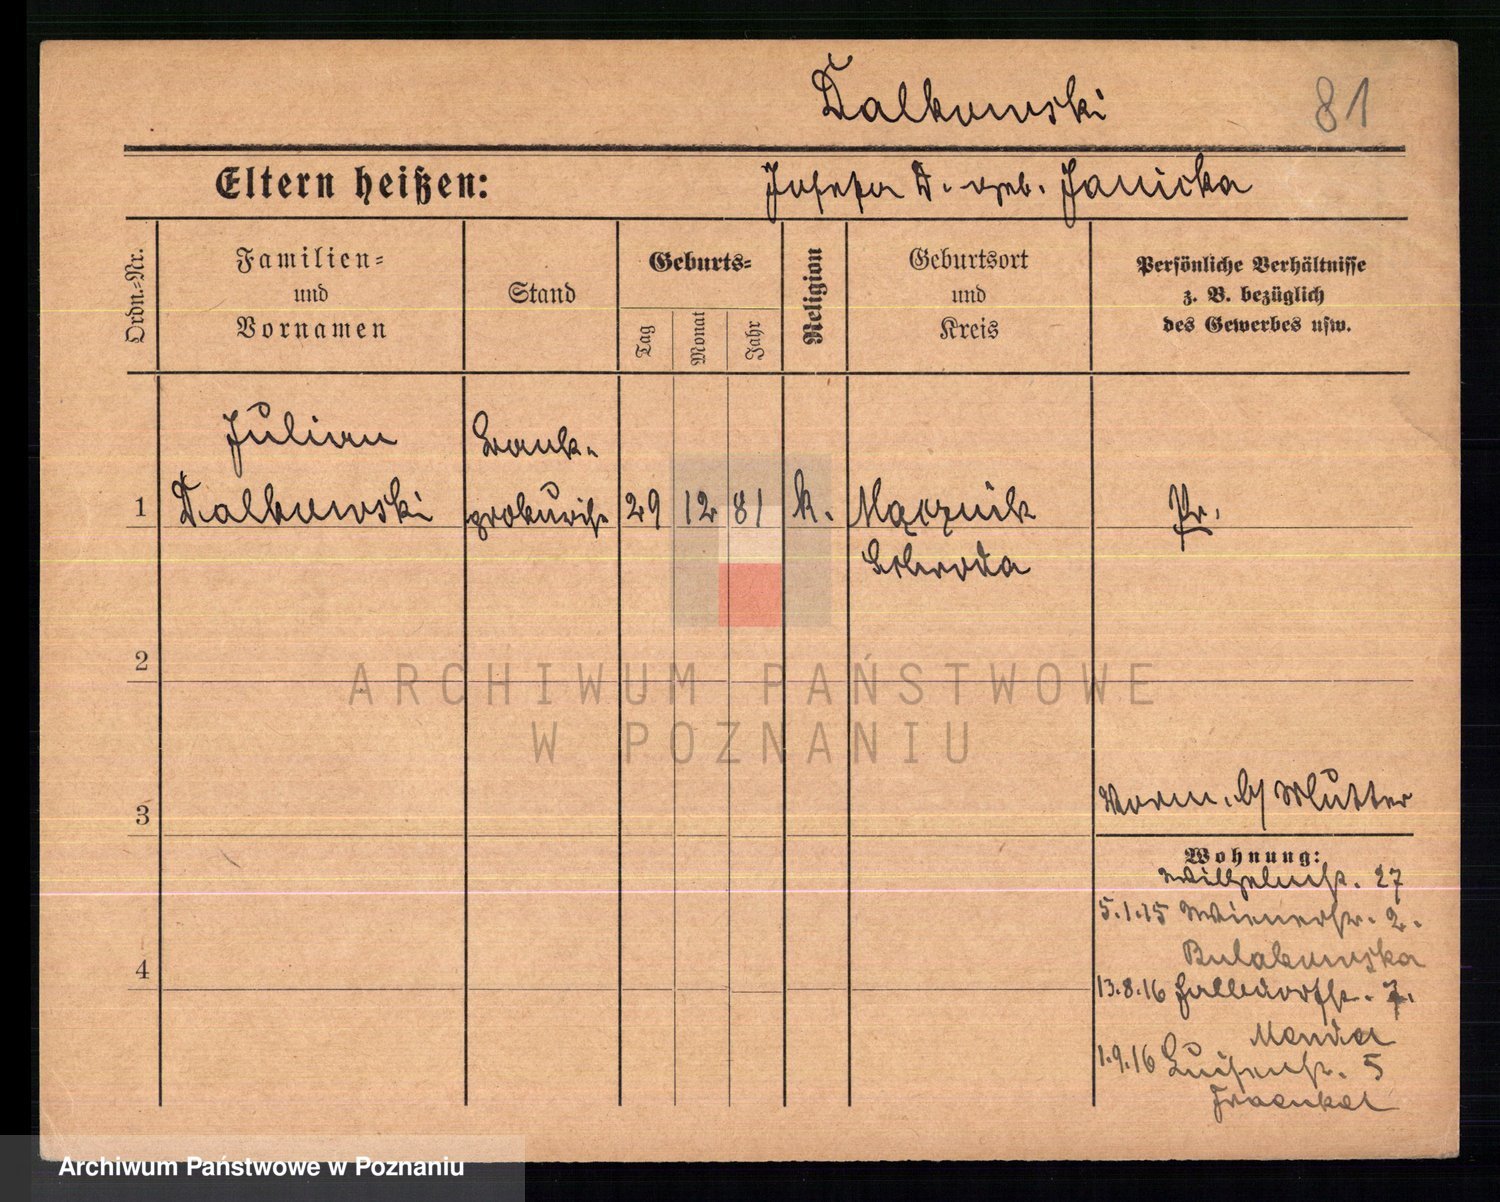 Dalkowski 81
Eltern heißen: Josefa D. geb. Janicka
Ordn.-Nr.
Familien-
und
Vornamen
Stand
Geburts-
Tag
Monat
Jahr
Religion
Geburtsort
und
Kreis
Persönliche Verhältnisse
z. B. bezüglich
des Gewerbes usw.
Julian
Bank-
1 Dalkowski 29 12 81 k. Mącznik Pr.
Schroda
2
ARCHIWUM PAŃSTWOWE
W POZNANIU
Vorm. b/ Mutter
3
Wohnung:
Wilhelmstr. 27
5.1.15 Wienerstr. 2.
Bulakowska
4
13.8.16 7.
1.9.16 Luisenstr. 5
Fraenkel
Archiwum Państwowe w Poznaniu